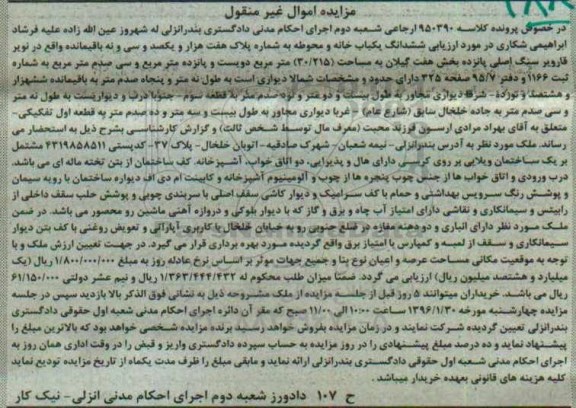 مزایده اموال غیر منقول
در خصوص پرونده کلاسه ۹۵۰۳۹۰ ارجاعی شعبه دوم اجرای احکام مدنی دادگستری بندرانزلی له شهروز عین الله زاده علیه فرشاد
ابراهیمی شکاری در مورد ارزیابی ششدانگ یکباب خانه و محوطه به شماره پلاک هفت هزار و یکصد و سی و نه باقیمانده واقع در نویر
قاارویر سنگ اصلی پانزده بخش هفت گیلان به مساحت (۳۰/۲۱۵) متر مربع دویست و پانزده متر مربع و سی صدم متر مربع به شماره
ثبت ۱۱۶۶ و دفتر ۹۵/۷ صفحه ۳۲۵ دارای حدود و مشخصات شمالا دیواری است به طول نه متر و پنجاه صدم متر به باقیمانده ششهزار
و هشتصد و نوزده - شرقا دیواری مجاور به طول بیست و دو متر و نود صدم متر به قطعه سوم - جنوبا درب و دیواریست به طول نه متر
و سی صدم متر به جاده خلخال سابق (شارع عام) - غربا دیواری مجاور به طول بیست و سه متر و ده صدم متر به قطعه اول تفکیکی-
متعلق به آقای بهراد مرادی ارسون فرزند محبت (معرف مال توسط شخص ثالث) و گزارش کارشناسی بشرح ذیل به استحضار می
رساند. ملک مورد نظر به آدرس بندرانزلی - نیمه شعبان - شهرک صادقیه - اتوبان خلخال - پلاک ۳۷- کدپستی ۴۳۱۹۸۵۸۵۱۱ مشتمل
بر یک ساختمان ویلایی بر روی کرسی دارای هال و پذیرایی، دو اتاق خواب، آشپزخانه. کف ساختمان از بتن تخته ماله ای می باشد.
درب ورودی و اتاق خواب ها از جنس چوب پنجره ها از چوب و آلومینیوم آشپزخانه و کابینت ام دی اف دیواره ساختمان با رویه سیمان
و پوشش رنگ سرویس بهداشتی و حمام با کف سرامیک و دیوار کاشی سقف اصلی با سربندی چوبی و پوشش حلب سقف داخلی از
رابیتس و سیمانکاری و نقاشی دارای امتیاز آب چاه و برق و گاز که با دیوار بلوکی و دروازه آهنی ماشین رو محصور می باشد. در ضمن
ملک مورد نظر دارای انباری و دو دهنه مغازه در ضلع جنوبی رو به خیابان خلخال با کاربری آپاراتی و تعویض روغنی با کف بتن دیوار
سیمانکاری و سقف از لمبه و کمپارس با امتیاز برق واقع گردیده مورد بهره برداری قرار می گیرد. در جهت تعیین ارزش ملک و با
توجه به موقعیت مکانی مساحت عرصه و اعیان نوع بنا و جمیع جهات موثر بر اساس نرخ عادله روز به مبلغ ۱/۸۰۰/۰۰۰/۰۰۰ ریال (یک
میلیارد و هشتصد میلیون ریال) ارزیابی می گردد. ضمنا میزان طلب محکوم له ۱/۳۶۳/۴۴۴/۴۳۲ ریال و نیم عشر دولتی ۶۱/۱۵۰/۰۰۰
ریال می باشد. خریداران میتوانند ۵ روز قبل از جلسه مزایده از ملک مشروحه ذیل به نشانی فوق الذکر بالا بازدید سپس در جلسه
مزایده چهارشنبه مورخه ۱۳۹۶/۱/۳۰ ساعت ۱۰:۰۰ الی ۱۱/۰۰ صبح که مقر آن دائره اجرای احکام مدنی شعبه اول حقوقی دادگستری
بندرانزلی تعیین گردیده شرکت نمایند و در زمان مزایده بفروش خواهد رسید برنده مزایده شخصی خواهد بود که بالاترین مبلغ را
پیشنهاد نماید و ده درصد مبلغ پیشنهادی را در روز مزایده به حساب سپرده دادگستری واریز و قبض را در وقت اداری همان روز به
اجرای احکام مدنی شعبه اول حقوقی دادگستری بندرانزلی ارائه نماید و مابقی مبلغ را ظرف مدت یکماه از تاریخ مزایده تودیع نماید
کلیه هزینه های قانونی بعهده خریدار میباشد.
ح ۱۰۷ دادورز شعبه دوم اجرای احکام مدنی انزلی - نیک کار